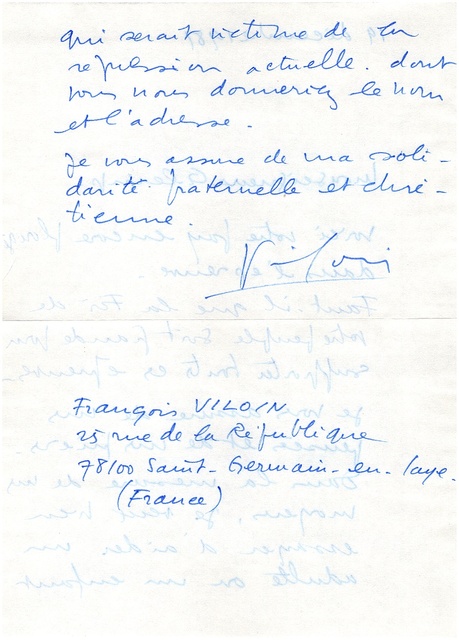 qui serait victime de la
répression actuelle. dont
vous nous donneriez le nom
et l'adresse.
Je vous assure de ma soli-
darité fraternelle et chré-
tienne
Viloin
François VILOIN
25 rue de la République
78100 Saint-Germain-en-Laye.
(France)